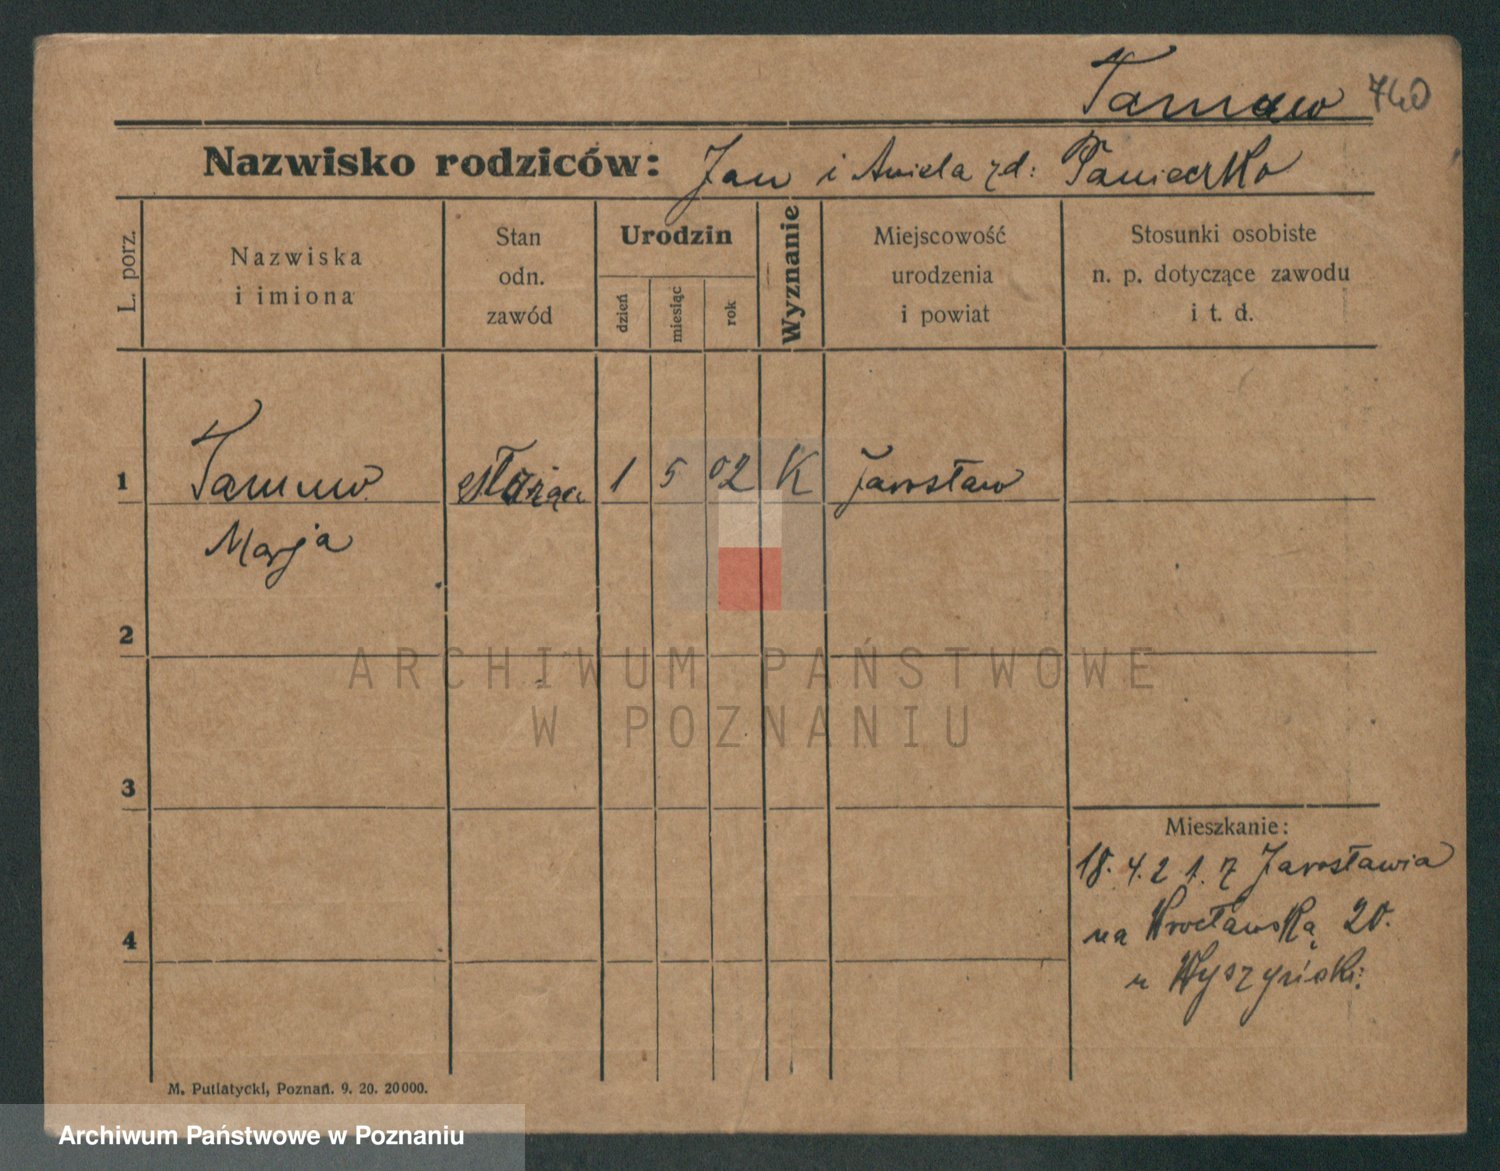 740
Nazwisko rodziców: Jan i Aniela zd:
L. porz.
Nazwiska
i imiona
Stan
odn.
zawód
Urodzin
dzień
miesiąc
rok
Wyznanie
Miejscowość
urodzenia
i powiat
Stosunki osobiste
n. p. dotyczące zawodu
i t. d.
1
służąca 1 5 02 K Jarosław
Marja
2
3
4
Mieszkanie:
18. 4. 21. z Jarosławia
na Wrocławską 20.
u
M. Putiatycki, Poznań. 9. 20. 20000.
ARCHIWUM PAŃSTWOWE
W POZNANIU
Archiwum Państwowe w Poznaniu